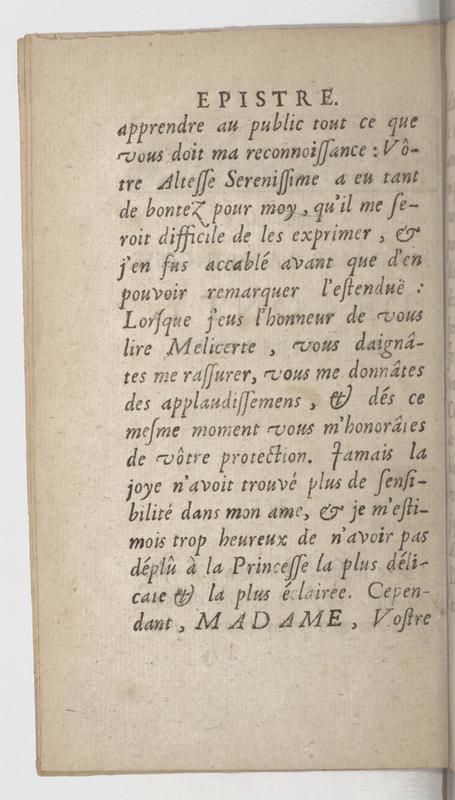 EPISTRE.
apprendre au public tout ce que
vous doit ma reconnoiſſance : Vô-
tre Alteſſe Sereniſſime a eu tant
de bontez pour moy, qu'il me ſe-
roit difficile de les exprimer, &
j'en fus accablé avant que d'en
pouvoir remarquer l'eſtenduë :
Lorſque j'eus l'honneur de vous
lire Melicerte, vous daignâ-
tes me raſſurer, vous me donnâtes
des applaudiſſemens, & dés ce
meſme moment vous m'honorâtes
de vôtre protection. Jamais la
joye n'avoit trouvé plus de ſenſi-
bilité dans mon ame, & je m'eſti-
mois trop heureux de n'avoir pas
déplû à la Princeſſe la plus déli-
cate & la plus éclairée. Cepen-
dant, MADAME, Voſtre